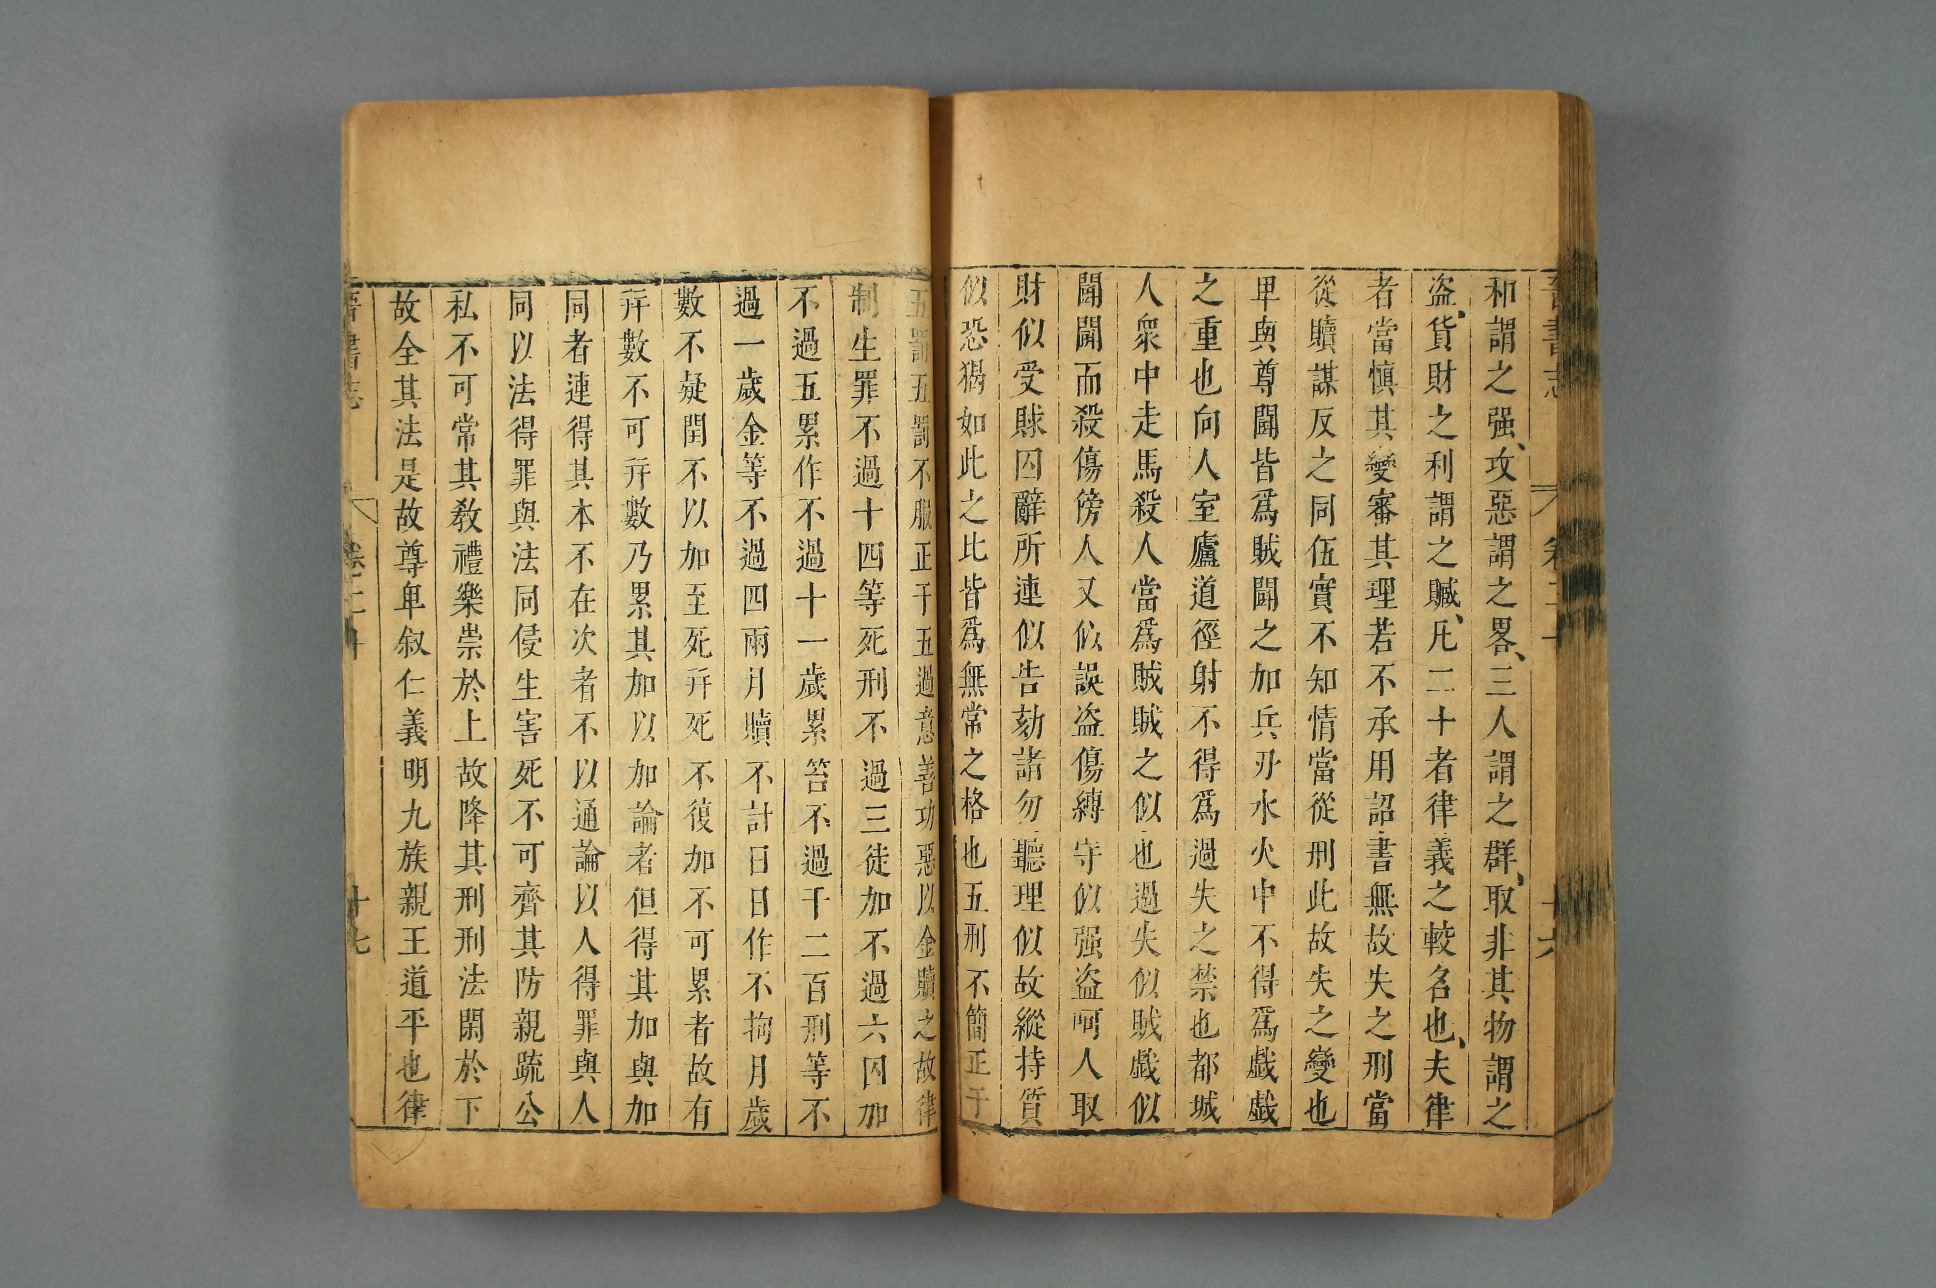 晉書志 卷三十 十六
和謂之强、攻惡謂之畧、三人謂之群、取非其物謂之
盜、貨財之利謂之贓、凡二十者律義之較名也、夫律
者當慎其變審其理若不承用詔書無故失之刑當
從贖謀反之同伍實不知情當從刑此故失之變也
卑與尊鬭皆爲賊鬭之加兵刃水火中不得爲戯戯
之重也向人室廬道徑射不得爲過失之禁也都城
人衆中走馬殺人當爲賊賊之似也過失似賊戯似
鬭鬭而殺傷傍人又似誤盜傷縛守似强盜呵人取
財似受賕囚辭所連似告劾諸勿聽理似故縱持質
似恐猲如此之比皆爲無常之格也五刑不簡正于
五罰五罰不服正于五過意善功惡以金贖之故律
制生罪不過十四等死刑不過三徒加不過六囚加
不過五累作不過十一歲累笞不過千二百刑等不
過一歲金等不過四兩月贖不計日日作不拘月歲
數不疑閏不以加至死并死不復加不可累者故有
并數不可并數乃累其加以加論者但得其加與加
同者連得其本不在次者不以通論以人得罪與人
同以法得罪與法同侵生害死不可齊其防親疏公
私不可常其教禮樂崇於上故降其刑刑法閑於下
故全其法是故尊卑叙仁義明九族親王道平也律
晉書志 卷三十 十七